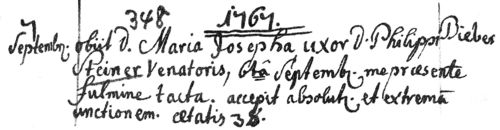 348 1767.
7
Septembr. obijt D. Maria Josepha uxor D. Philippi
Steiner Venatoris, 6tâ Septembr. me præsente
fulmine tacta. accepit absolut. et extremâ
unctionem. ætatis 38.